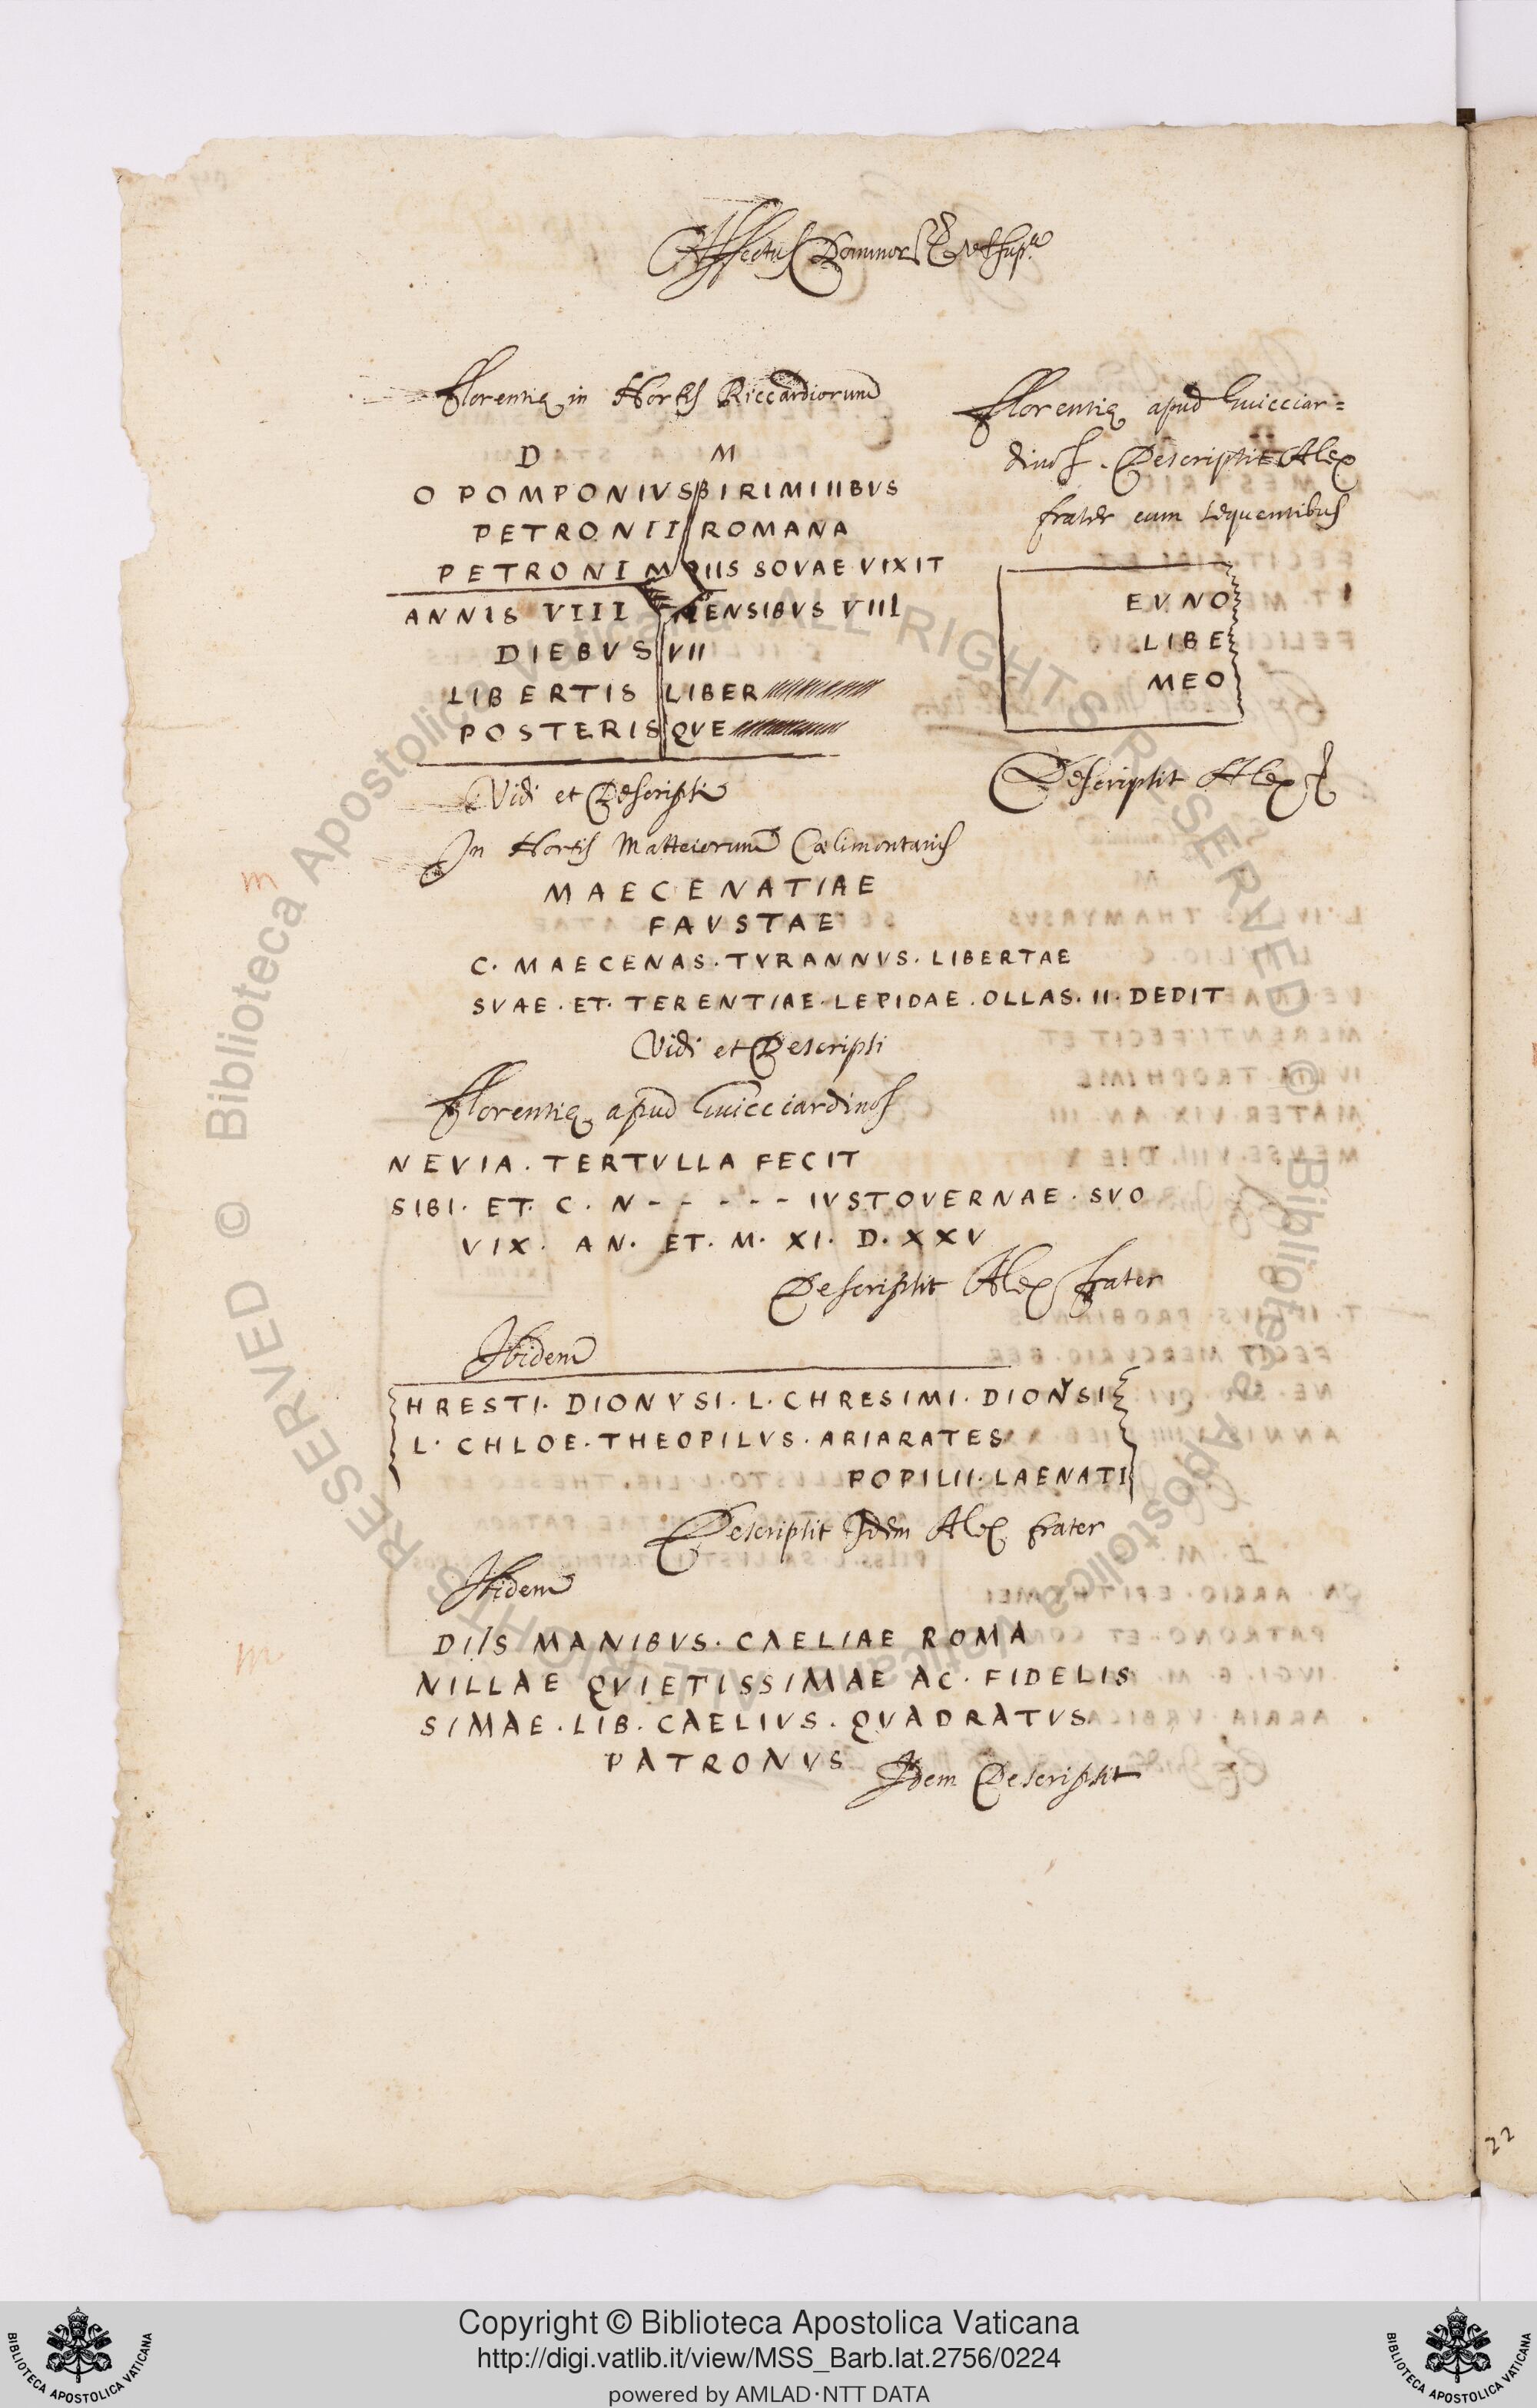 Affectus Dominor &
Florentię in Hortis Riccardiorum
D M
O POMPONIVS BIRIMIIIBVS
PETRONII ROMANA
PETRONI M IIS SOVAE VIXIT
ANNIS VIII MENSIBVS VIII
DIEBVS VII
LIBERTIS LIBER
POSTERIS QVE
Vidi et Descripsi
Florentię apud Guicciar=
dinos. Descripsit Alex
frater cum sequentibus
EVNO
LIBE
MEO
Descripsit Alex f
In Hortis Matteiorum Cœlimontanis
MAECENATIAE
FAVSTAE
C. MAECENAS. TVRANNVS. LIBERTAE
SVAE. ET. TERENTIAE. LEPIDAE. OLLAS. II. DEDIT
Vidi et Descripsi
Florentię apud Guicciardinos
NEVIA. TERTVLLA FECIT
SIBI. ET. C. N - - - - - IVSTOVERNAE. SVO
VIX. AN. ET. M. XI. D. XXV
Descripsit Alex frater
Ibidem
HRESTI. DIONVSI. L. CHRESIMI. DIONYSI
L. CHLOE. THEOPILVS. ARIARATES
POPILII. LAENATI
Descripsit Idem Alex frater
Ibidem
DIIS MANIBVS. CAELIAE ROMA
NILLAE QVIETISSIMAE AC. FIDELIS
SIMAE. LIB. CAELIVS. QVADRATVS
PATRONVS Idem Descripsit
m
m
22
© Biblioteca Apostolica Vaticana ALL RIGHTS RESERVED © Biblioteca Apostolica Vaticana ALL RIGHTS RESERVED
Copyright © Biblioteca Apostolica Vaticana
http://digi.vatlib.it/view/MSS_Barb.lat.2756/0224
powered by AMLAD·NTT DATA
BIBLIOTECA APOSTOLICA VATICANA
BIBLIOTECA APOSTOLICA VATICANA